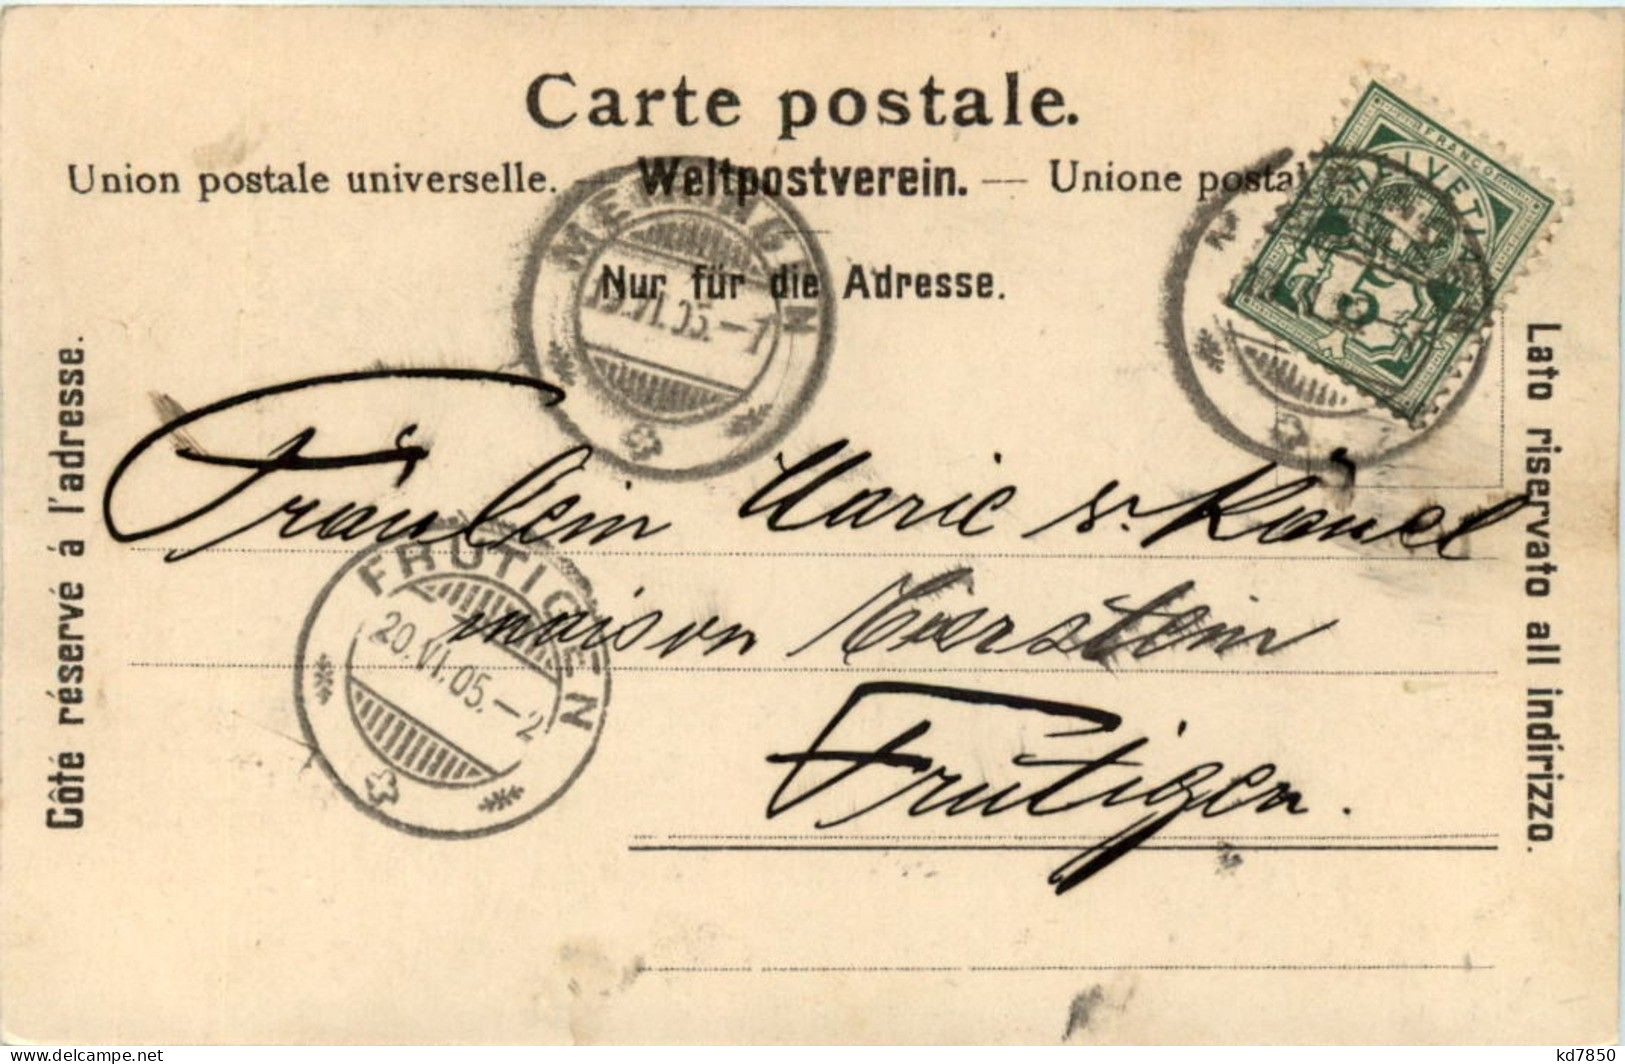 Carte postale.
Union postale universelle. — Weltpostverein. — Unione postal
Nur für die Adresse.
Côté réservé à l'adresse.
Lato riservato all indirizzo.
FRANCO
HELVETIA
5
MEIRINGEN
19.VI.05.—7
FRUTIGEN
20.VI.05.—2
Fräulein Marie
maison
Frutigen.
kd7850